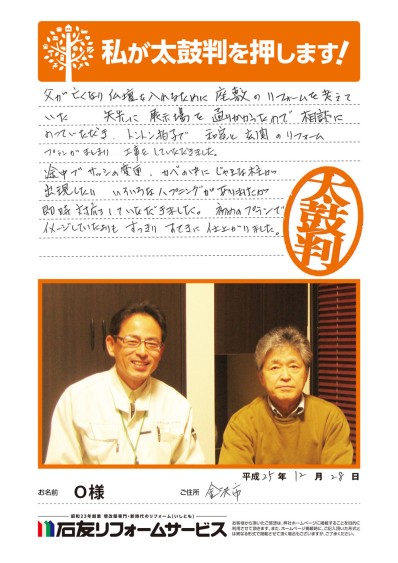 私が太鼓判を押します!
父が亡くなり仏壇を入れるために座敷のリフォームを考えて
いた 矢先に展示場を通りかかったので相談に
のっていただき、トントン拍子で 和室と玄関のリフォーム
プランがまとまり 工事をしていただきました。
途中でサッシの費用、カベの中にじゃまな柱が
出現したり いろいろなハプニングがありましたが
即時対応していただきました。初めのプランで
イメージしていたよりもすっきりすてきに仕上がりました。
太鼓判
平成25年12月28日
お名前 O様 ご住所 金沢市
昭和23年創業 増改築専門・新時代のリフォーム[いしとも]
石友リフォームサービス